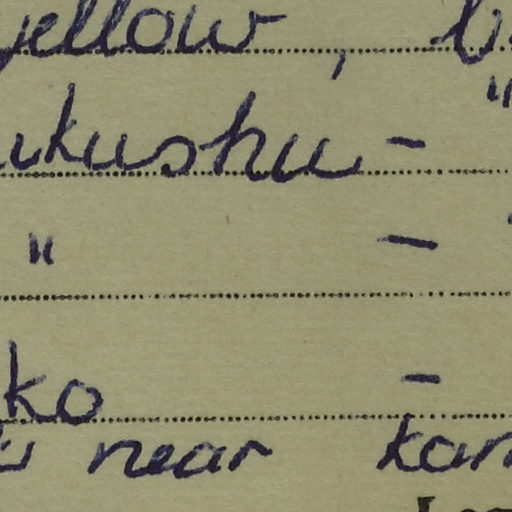 yellow, b
ukushu - "
" -
ko -
near kar